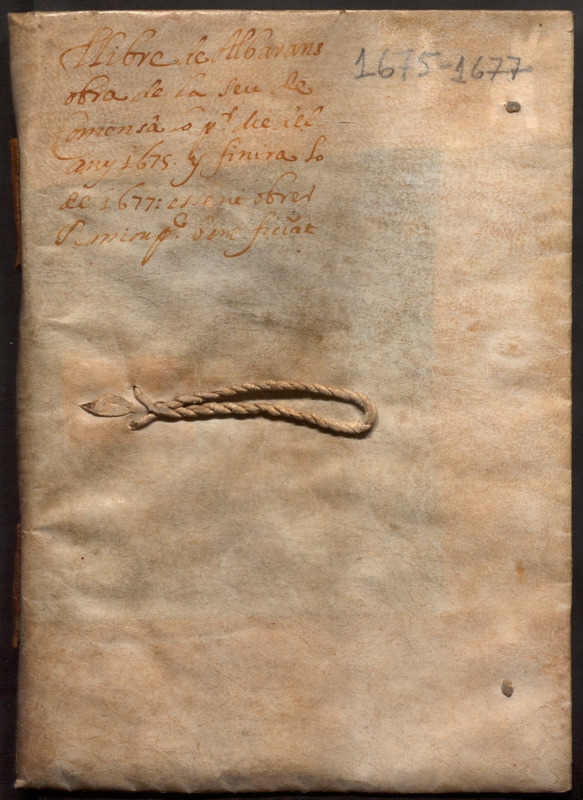 Llibre de Albarans
1675-1677
obra de la seu de
comensa lo p.r de
any 1675. y finira lo
de 1677: essent obrer